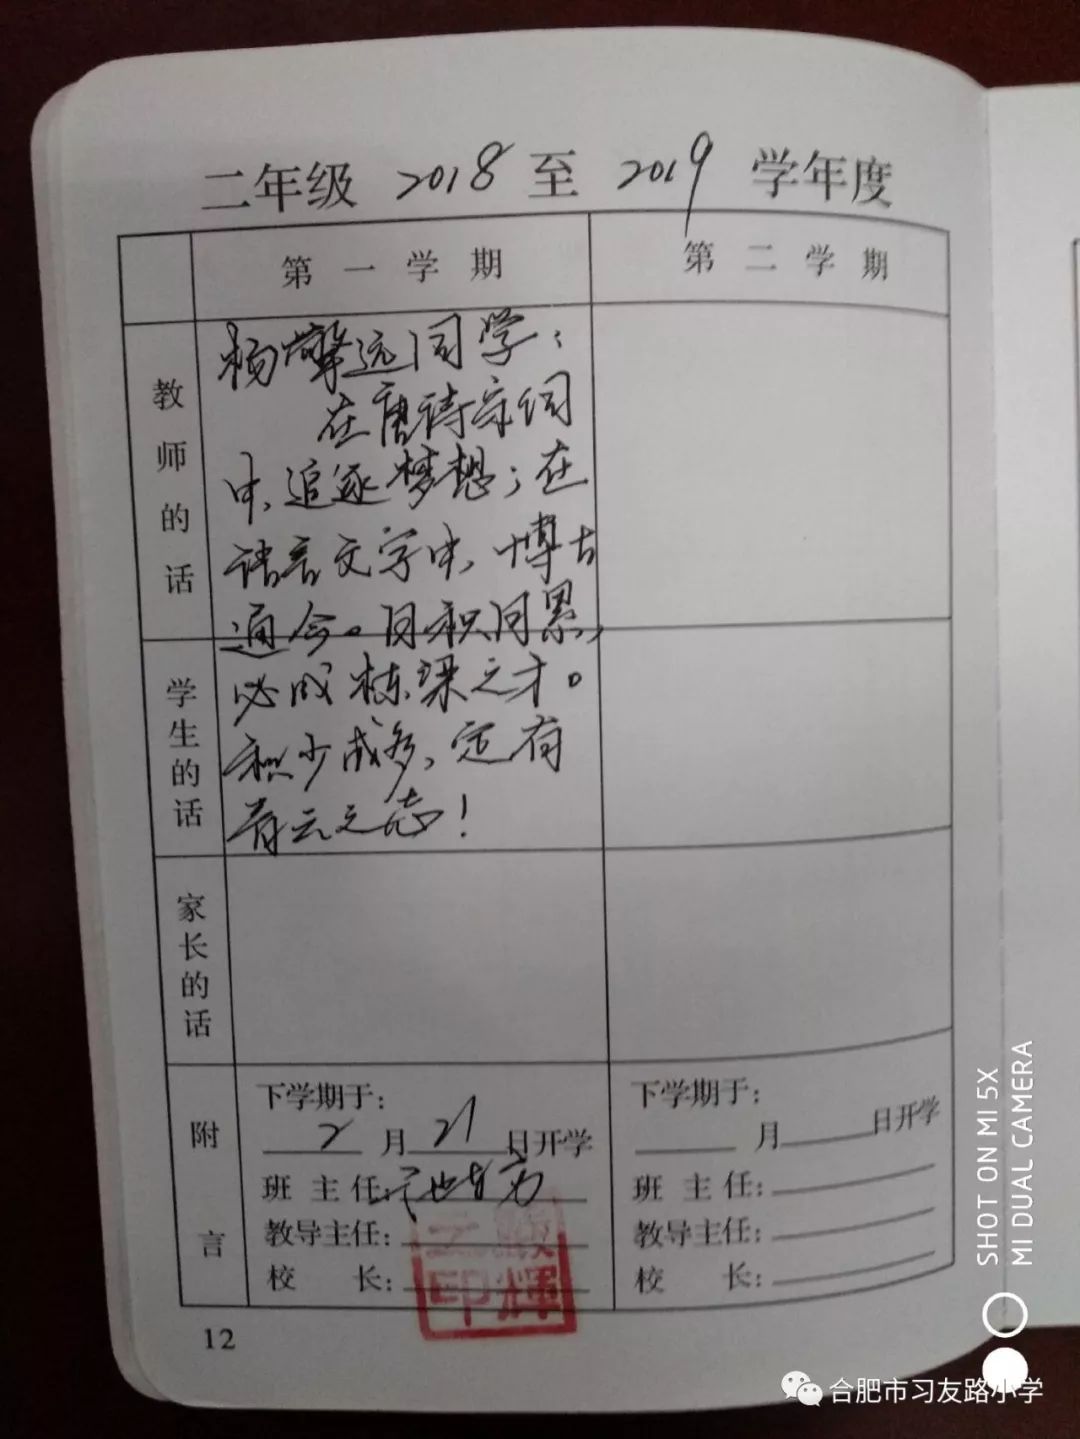 二年级 2018 至 2019 学年度
第一学期
第二学期
教师的话
杨擎远同学：
在唐诗宋词
中，追逐梦想；在
语言文字中，博古
通今。日积月累，
必成栋梁之才。
积少成多，定有
青云之志！
学生的话
家长的话
附言
下学期于：
2月21日开学
班主任：
教导主任：
校长：
下学期于：
月 日开学
班主任：
教导主任：
校长：
印
輝
12
SHOT ON MI 5X
MI DUAL CAMERA
合肥市习友路小学